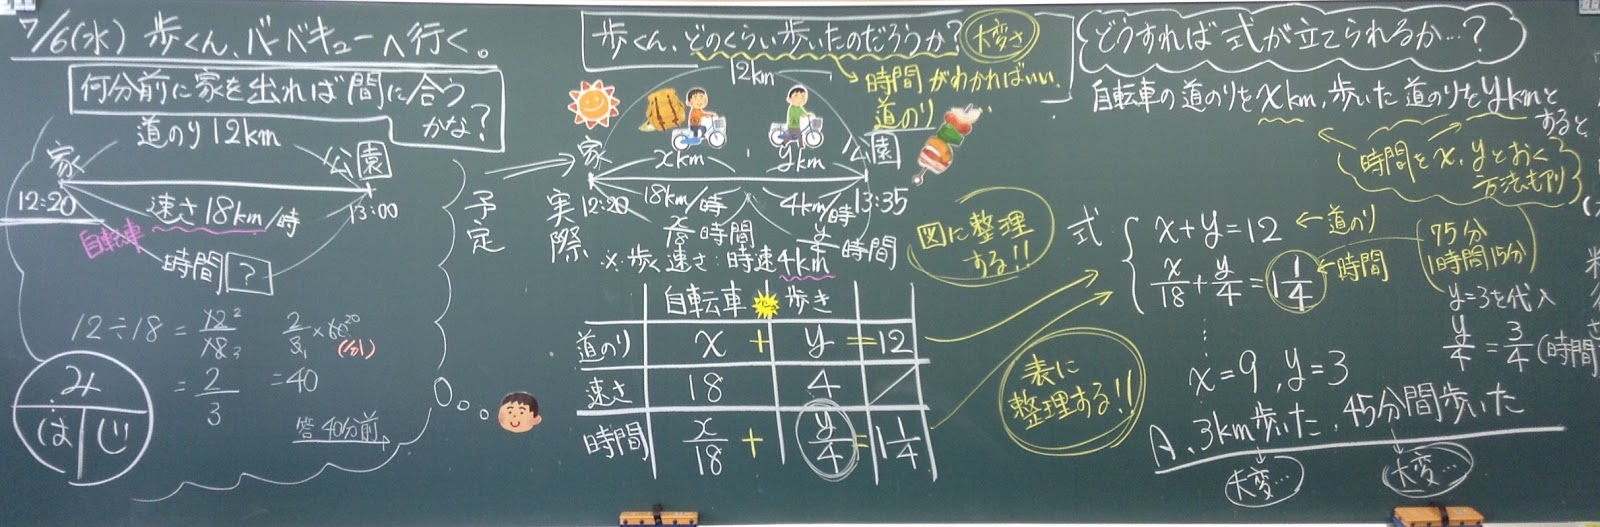 7/6(水) 歩くん、バーベキューへ行く。
何分前に家を出れば間に合う
かな?
道のり 12km
家
公園
12:20
速さ 18km/時
13:00
自転車
時間 ?
12÷18 = 12²/18₃
2/3₁ × 60²⁰
(分)
= 2/3
= 40
答 40分前
み
は じ
予定
歩くん、どのくらい歩いたのだろうか?
大変さ
時間 がわかればいい。
道のり
12km
家
xkm
ykm
公園
実際
12:20
18km/時
4km/時
13:35
x/18 時間
y/4 時間
※歩く速さ:時速4km
自転車 歩き
道のり x + y = 12
速さ 18 4
時間 x/18 + y/4 = 1 1/4
図に整理
する!!
表に
整理する!!
どうすれば式が立てられるか…?
自転車の道のりをxkm, 歩いた道のりをykmと
すると
時間をx, yとおく
方法もアリ
式
x+y=12 ←道のり
x/18 + y/4 = 1 1/4 ←時間
75分
(1時間15分)
y=3を代入
y/4 = 3/4 (時間
⋮
x=9, y=3
A. 3km歩いた, 45分間歩いた
大変…
大変…